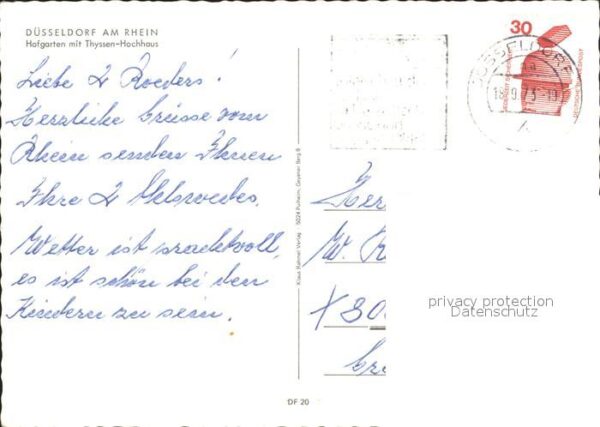 DÜSSELDORF AM RHEIN
Hofgarten mit Thyssen-Hochhaus
Liebe 2 Roeders!
Herzliche Grüsse vom
Rhein senden Ihnen
Ihre 2
Wetter ist prachtvoll,
es ist schön bei den
Kindern zu sein.
Klaus Rahmel Verlag 5024 Pulheim, Geyener Berg 8
30
DÜSSELDORF
18.9.73-19
Her
W. R
DF 20
privacy protection
Datenschutz